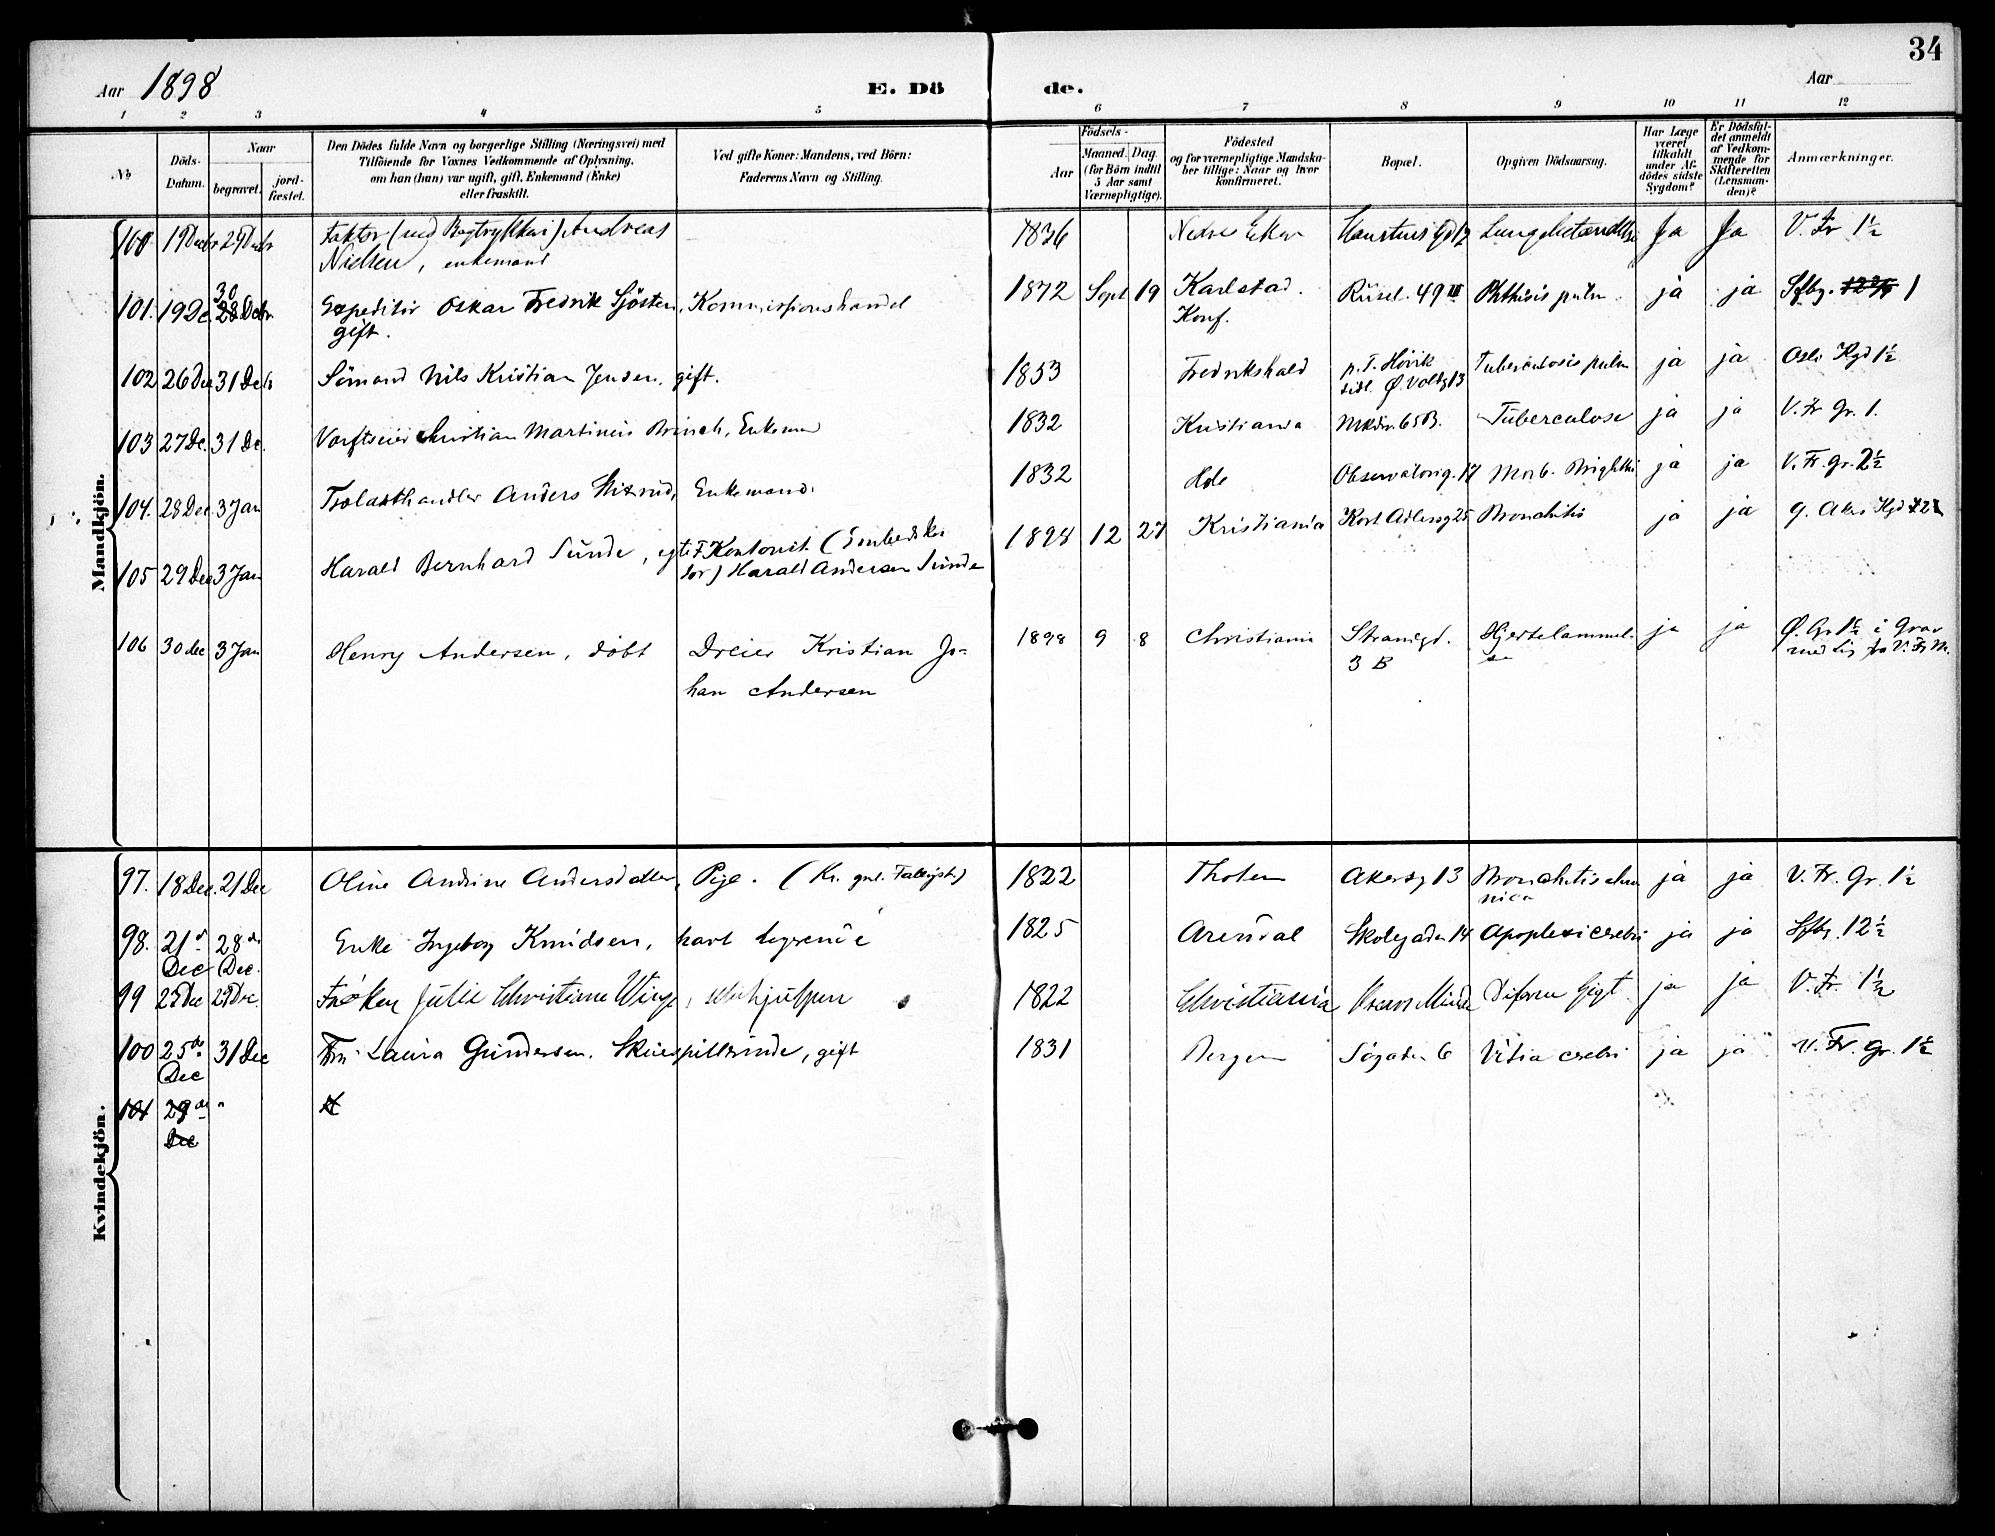 34
Aar 1898
E. Dö
de.
Aar
1 2 3 4 5 6 7 8 9 10 11 12
No
Döds-
Datum.
Naar
begravet.
jord-
fæstet.
Den Dödes fulde Navn og borgerlige Stilling (Næringsvei) med
Tilföiende for Voxnes Vedkommende af Oplysning,
om han (hun) var ugift, gift, Enkemand (Enke)
eller fraskilt.
Ved gifte Koner: Mandens, ved Börn:
Faderens Navn og Stilling.
Födsels-
Aar
Maaned. Dag
(for Börn indtil
5 Aar samt
Værnepligtige).
Födested
og for værnepligtige Mandska-
ber tillige: Naar og hvor
konfirmeret.
Bopæl.
Opgiven Dödsaarsag.
Har Læge
været
tilkaldt
under Af-
dödes sidste
Sygdom?
Er Dödsfal-
det anmeldt
af Vedkom-
mende for
Skifteretten
(Lensman-
den)?
Anmærkninger.
Mandkjön.
100 19 Decbr 29 Decbr Faktor (ved Bogtrykkeri) Andreas 1836 Nedre Eker Lungebetændelse Ja Ja V. Fr 1½
Nielsen, enkemand
30
101. 19 De. 28 Decbr. Expeditör Oskar Fredrik Sjösten, Kommissionshandel 1872 Sept 19 Karlstad. Rüsel. 49 III Phthisis pulm. ja ja Sfbg. 1
gift. Konf.
102 26 Dec 31 Decbr Sömand Nils Kristian Jensen, gift. 1853 Fredrikshald p. T. Hövik Tuberculosis pulm ja ja Oslo Kgd 1½
103 27 De. 31 De. Værftseier Christian Martinius Brinch, Enkemand 1832 Kristiania Mkdsv. 65 B. Tuberculose ja ja V. Fr Gr. 1.
104. 28 Dec. 3 Jan Trælasthandler Anders Enkemand. 1832 Hole Observatorig. 17 Morb. Brightii ja ja V. Fr. gr. 2½
105 29 Dec 3 Jan Harald Bernhard Sunde, egte F Kontorist (Embedskon 1898 12 27 Kristiania Kort Adlersg 25 Bronchitis ja ja G. Akers Kgd
tor) Harald Andersen Sunde
106 30 dec 3 Jan Henry Andersen, döbt Dreier Kristian Jo- 1898 9 8 Christiania Strandgd. Hjertelammel- ja ja Ø. Gr 1½ i Grav
han Andersen 3 B se med Lig fra V. Fr M.
Kvindekjön.
97. 18 Dec. 21 Dec Oline Andrine Andersdatter, Pige. 1822 Thoten Akersg 13 Bronchitis chro ja ja V. Fr. Gr. 1½
nica
98. 21de 28de Enke Ingeborg Knudsen, havt logerende 1825 Arendal Skolegaden 14 Apoplexi cerebri ja ja Sfbg. 12½
Dec Dec.
99 25 Dec 29 Dec. Fröken Julie Christiane Winge, 1822 Christiania Oscars Minde Diform Gigt ja ja V. Fr. 1½
100 25de 31 Dec Fru Laura Gundersen. Skuespillerinde, gift 1831 Bergen Sögaden 6 Vitia cerebri ja ja V. Fr. gr. 1½
Dec
101 29de "
Dec